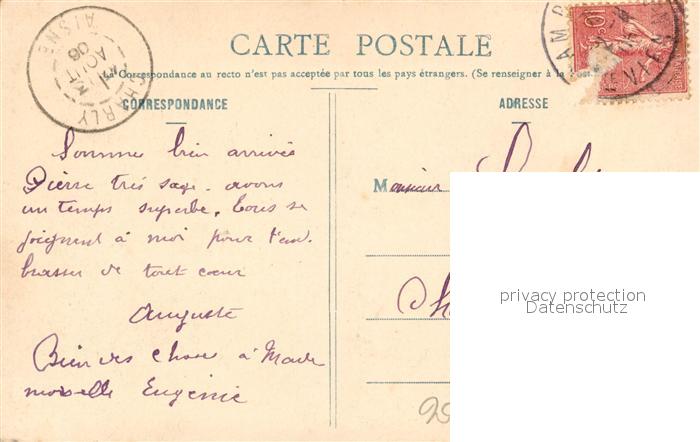 CARTE POSTALE
La Correspondance au recto n'est pas acceptée par tous les pays étrangers. (Se renseigner à la Poste
CORRESPONDANCE
ADRESSE
CHARLY
AOUT
06
AISNE
10
Sommes bien arrivés
Pierre très sage. avons
un temps superbe. Tous se
joignent à moi pour t'em-
brasser de tout coeur
Auguste
Bien des choses à Made
moiselle Eugénie
Monsieur
privacy protection
Datenschutz